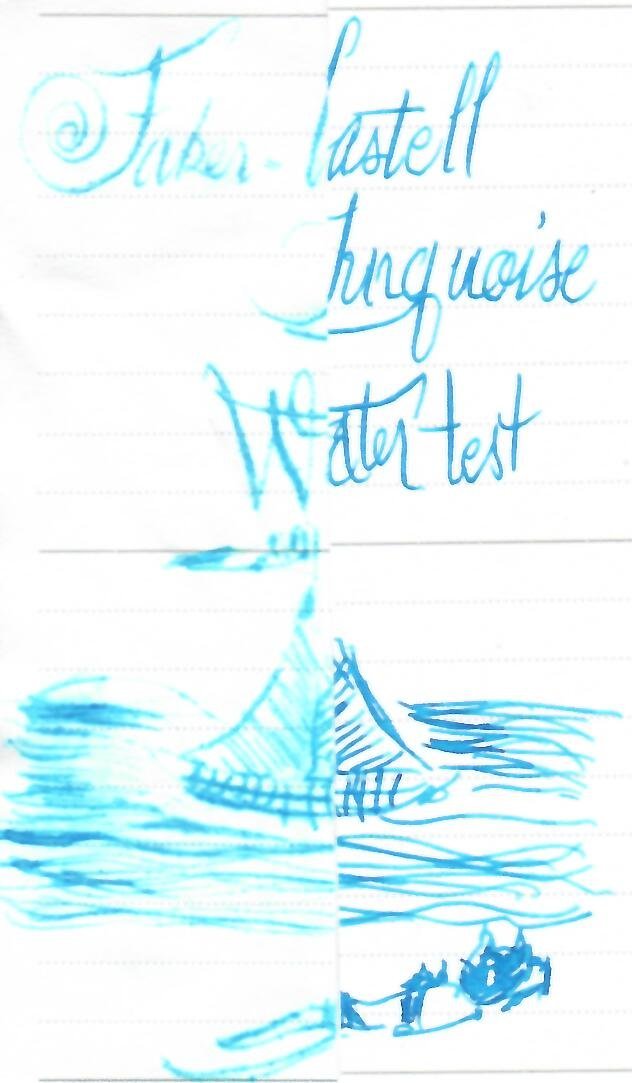 Faber-Castell
Turquoise
Water test